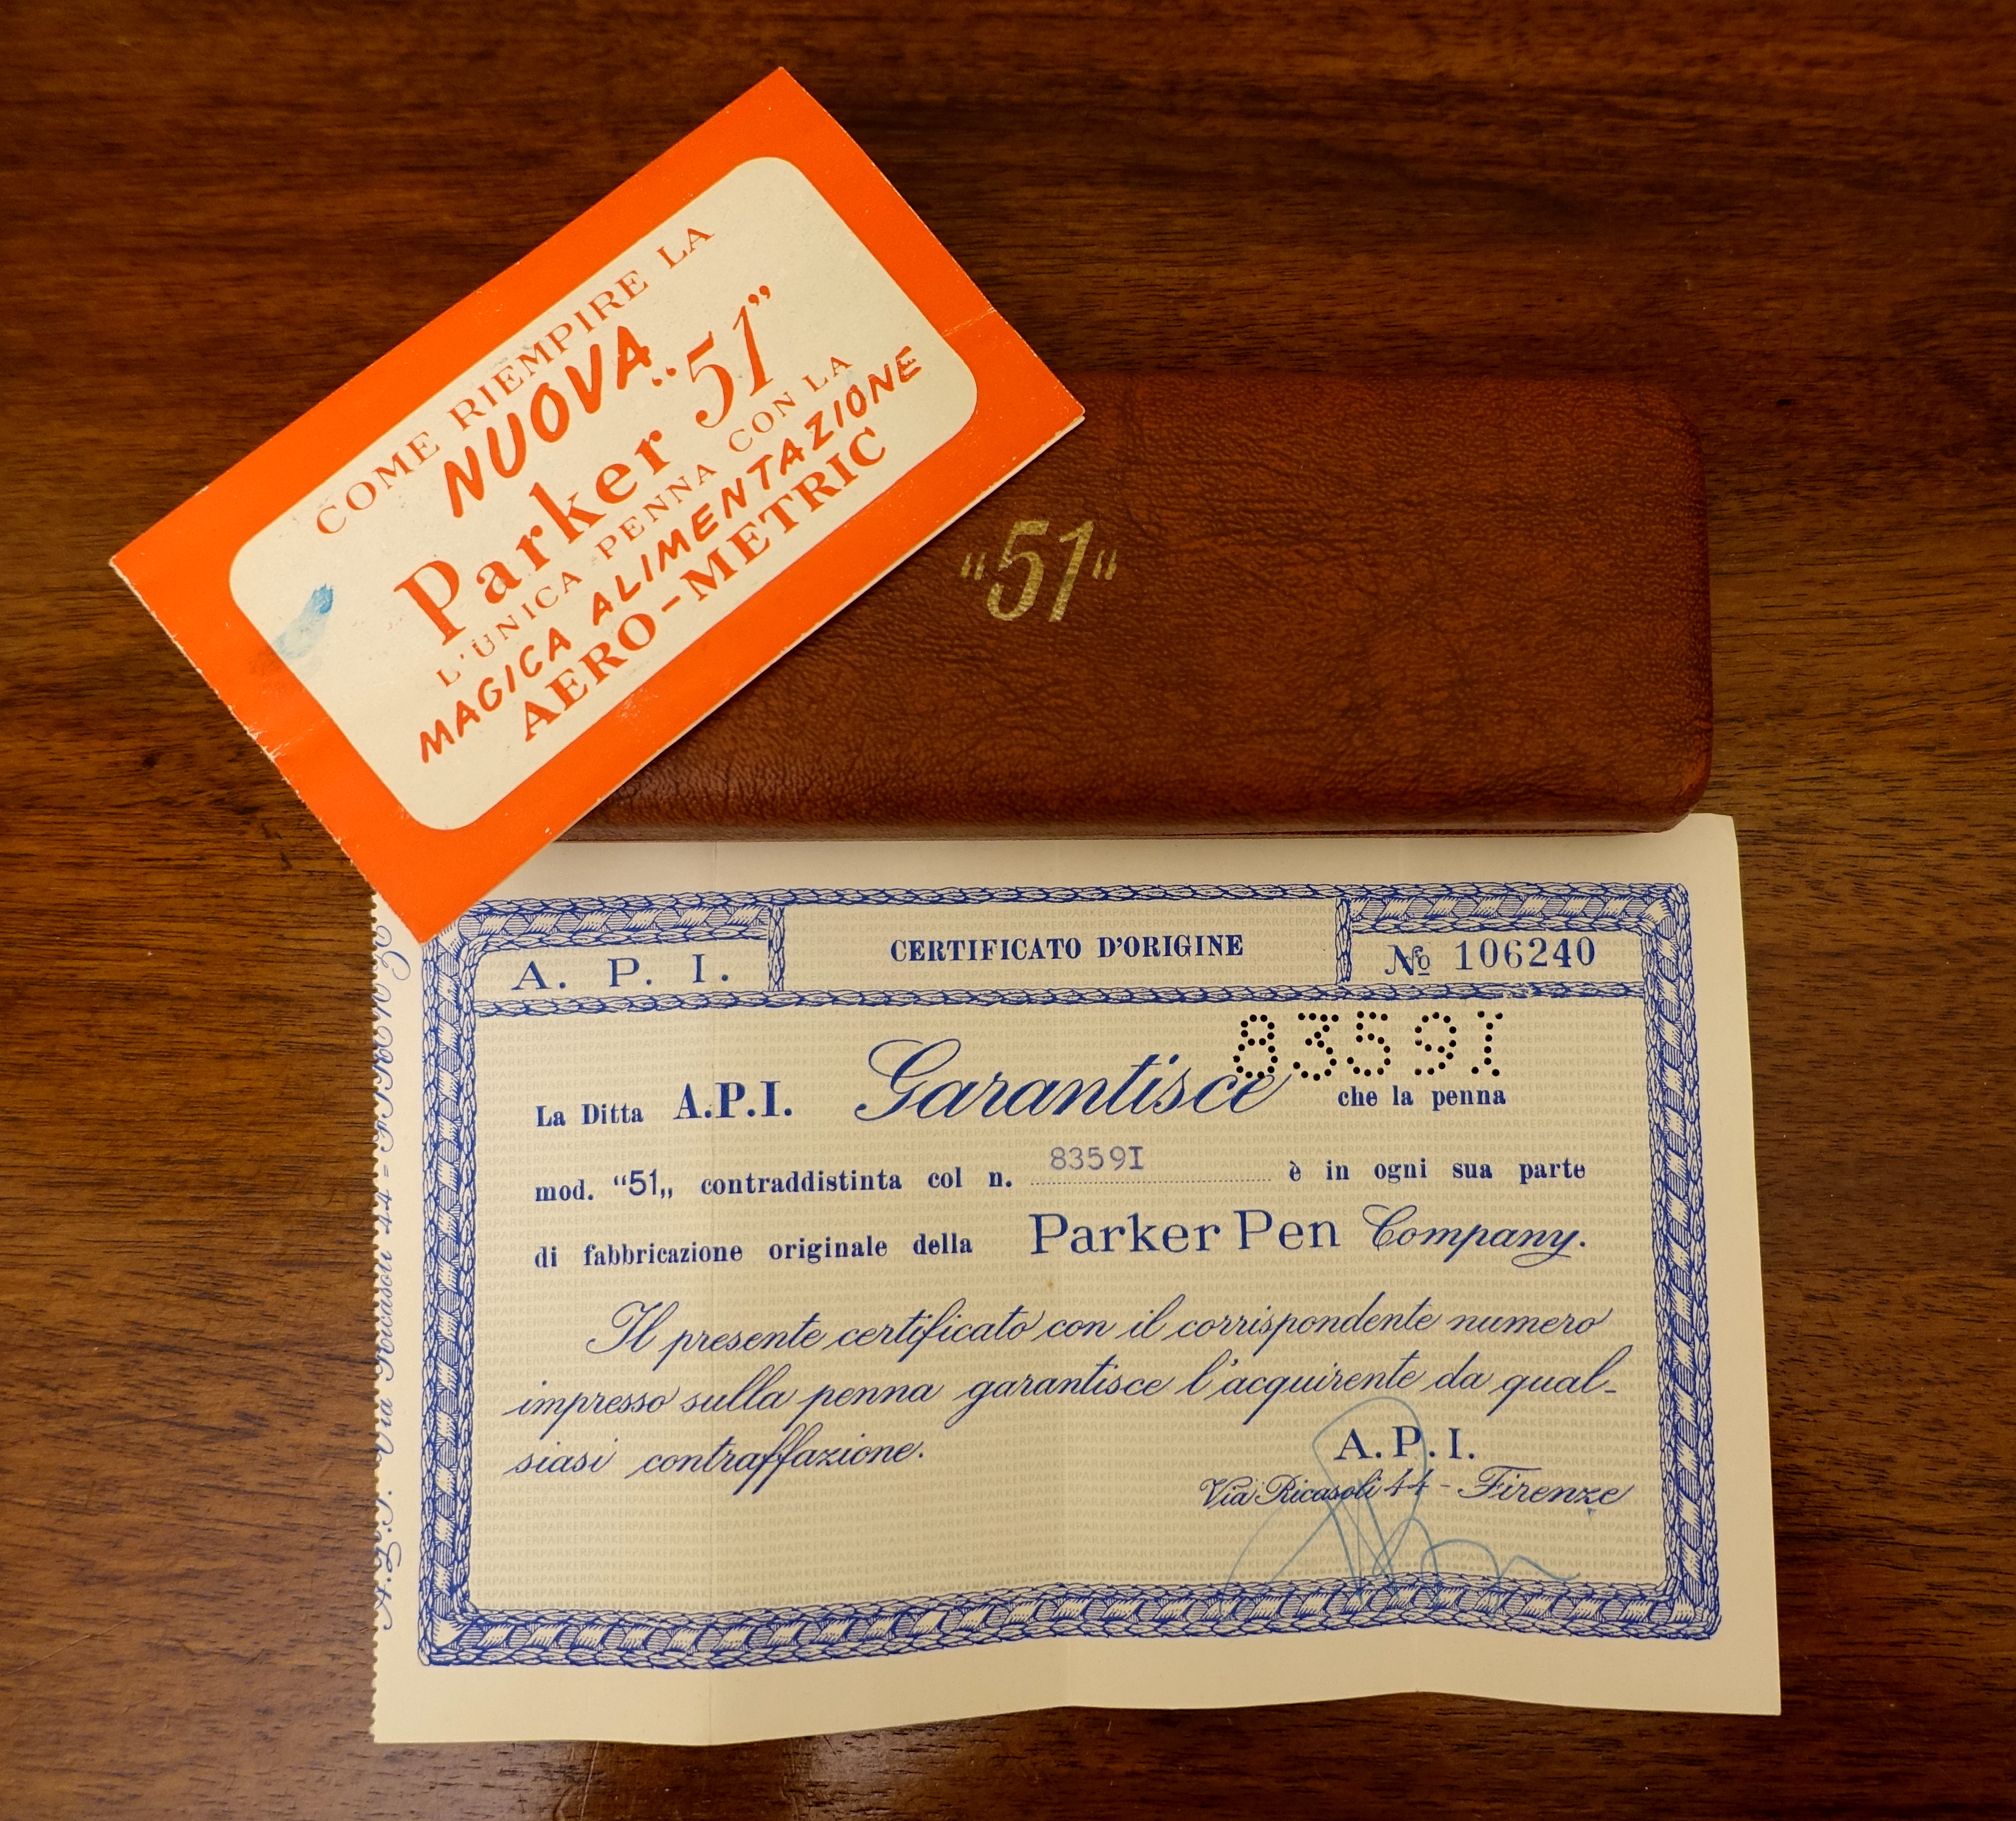 COME RIEMPIRE LA
NUOVA
Parker "51"
L'UNICA PENNA CON LA
MAGICA ALIMENTAZIONE
AERO-METRIC
"51"
A. P. I.
CERTIFICATO D'ORIGINE
№ 106240
8359I
La Ditta A.P.I. Garantisce che la penna
mod. “51„ contraddistinta col n. 8359I è in ogni sua parte
di fabbricazione originale della Parker Pen Company.
Il presente certificato con il corrispondente numero
impresso sulla penna garantisce l'acquirente da qual-
siasi contraffazione.
A.P.I.
Via Ricasoli 44 - Firenze
Via Ricasoli 44 -